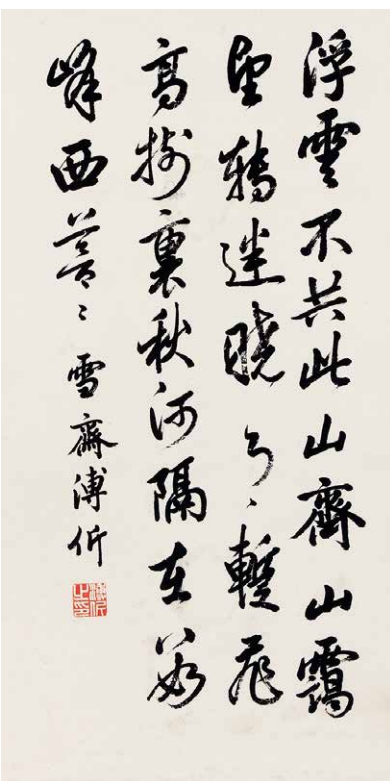 浮雲不共此山齊山靄
望轉迷曉月暫飛
高樹裏秋河隔在數
峰西蒼〻 雪齋溥伒
溥伒之印